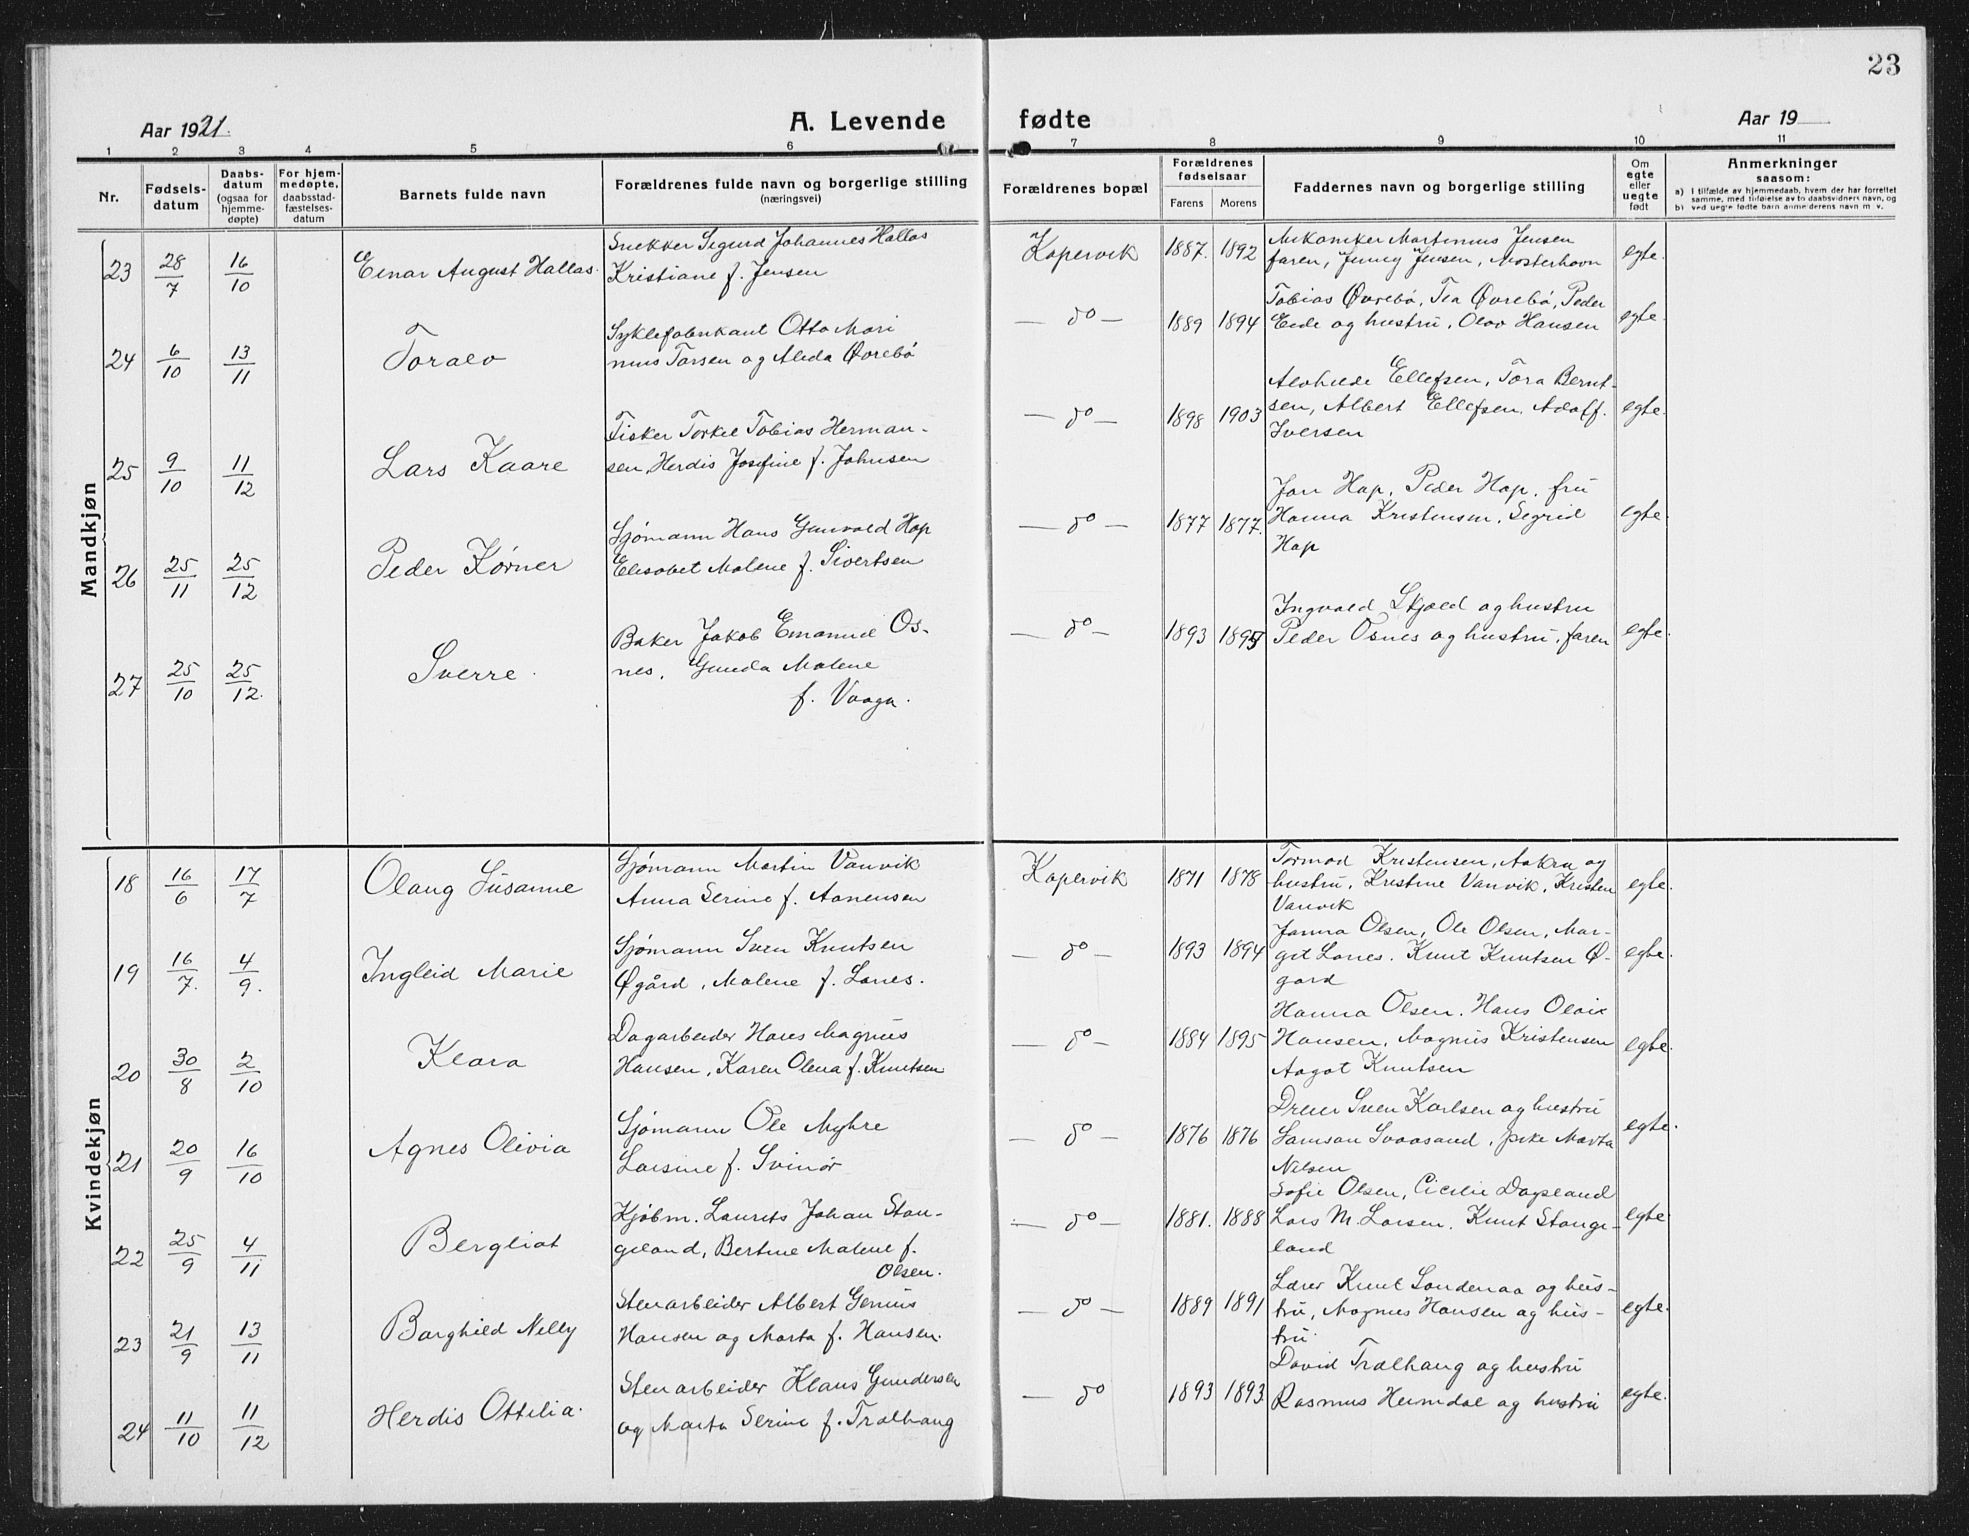 23
Aar 1921.
A. Levende
fødte
Aar 19
1 2 3 4 5 6 7 8 9 10 11
Nr.
Fødsels-
datum
Daabs-
datum
(ogsaa for
hjemme-
døpte)
For hjem-
medøpte,
daabsstad-
fæstelses-
datum
Barnets fulde navn
Forældrenes fulde navn og borgerlige stilling
(næringsvei)
Forældrenes bopæl
Forældrenes
fødselsaar
Farens Morens
Faddernes navn og borgerlige stilling
Om
egte
eller
uegte
født
Anmerkninger
saasom:
a) I tilfælde av hjemmedaab, hvem der har forrettet
samme, med tilføielse av to daabsvidners navn, og
b) ved uegte fødte barn anmelderens navn m. v.
Mandkjøn
23 28/7 16/10 Einar August Hallas.
Snekker Sigurd Johannes Hallas
Kristiane f. Jensen
Kopervik 1887. 1892
Mekaniker Martinius Jensen
faren, Jenny Jensen, Mosterhavn
egte.
24 6/10 13/11 Toralv
Syklefabrikant Otto Mari
nius Torsen og Alida Øvrebö
— do — 1889 1894
Tobias Øvrebö, Tea Øvrebö, Peder
Eide og hustru, Olav Hansen
egte.
25 9/10 11/12 Lars Kaare
Fisker Torkel Tobias Herman-
sen, Herdis Josefine f. Johnsen
— do — 1898 1903
Alvhilde Ellefsen, Tora Bernt-
sen, Albert Ellefsen, Adolf.
Iversen
egte.
26 25/11 25/12 Peder Kørner
Sjömann Hans Gunvald Hop
Elisabet Malene f. Sivertsen
— do — 1877 1877.
Jon Hop, Peder Hop, fru
Hanna Kristensen, Sigrid
Hop
egte.
27 25/10 25/12. Sverre.
Baker Jakob Emanuel Os-
nes, Gunda Malene
f. Vaagn.
— do — 1893 1895
Ingvald Skjold og hustru
Peder Osnes og hustru, faren
egte.
Kvindekjøn
18 16/6 17/7 Olaug Susanne
Sjömann Martin Vanvik
Anna Serine f. Aanensen
Kopervik 1871 1878
Tormod Kristensen, Aakra og
hustru, Kristine Vanvik, Kristen
Vanvik
egte.
19 16/7. 4/9. Ingleid Marie
Sjömann Sven Knutsen
Øgård, Malene f. Lones.
— do — 1893 1894
Janna Olsen, Ole Olsen, Mar-
git Lones. Knut Knutsen Ø-
gard
egte.
20 30/8 2/10 Klara
Dagarbeider Hans Magnus
Hansen, Karen Olena f. Knutsen
— do — 1884 1895
Hanna Olsen. Hans Olaix
Hansen, Magnus Kristensen
Aagot Knutsen
egte.
21 20/9 16/10 Agnes Olivia
Sjömann Ole Myhre
Larsine f. Svinör
— do — 1876 1876
Dreier Sven Karlsen og hustru
Samson Svaasand, pike Marta
Nilsen
egte.
22 25/9 4/11 Bergliot
Kjöbm. Laurits Johan Stan-
geland, Bertine Malene f.
Olsen.
— do — 1881. 1888
Sofie Olsen, Cicilie Dagsland
Lars M. Larsen. Knut Stange-
land
egte
23 21/9 13/11 Borghild Nelly
Stenarbeider Albert Genius
Hansen og Marta f. Hansen.
— do — 1889 1891
Lærer Knut Sandenaa og hus-
tru, Magnes Hansen og hus-
tru.
egte.
24 11/10 11/12 Herdis Ottilia.
Stenarbeider Klaus Gundersen
og Marta Serine f. Tralhaug
— do 1893 1893
David Tralhaug og hustru
Rasmus Heimdal og hustru
egte.